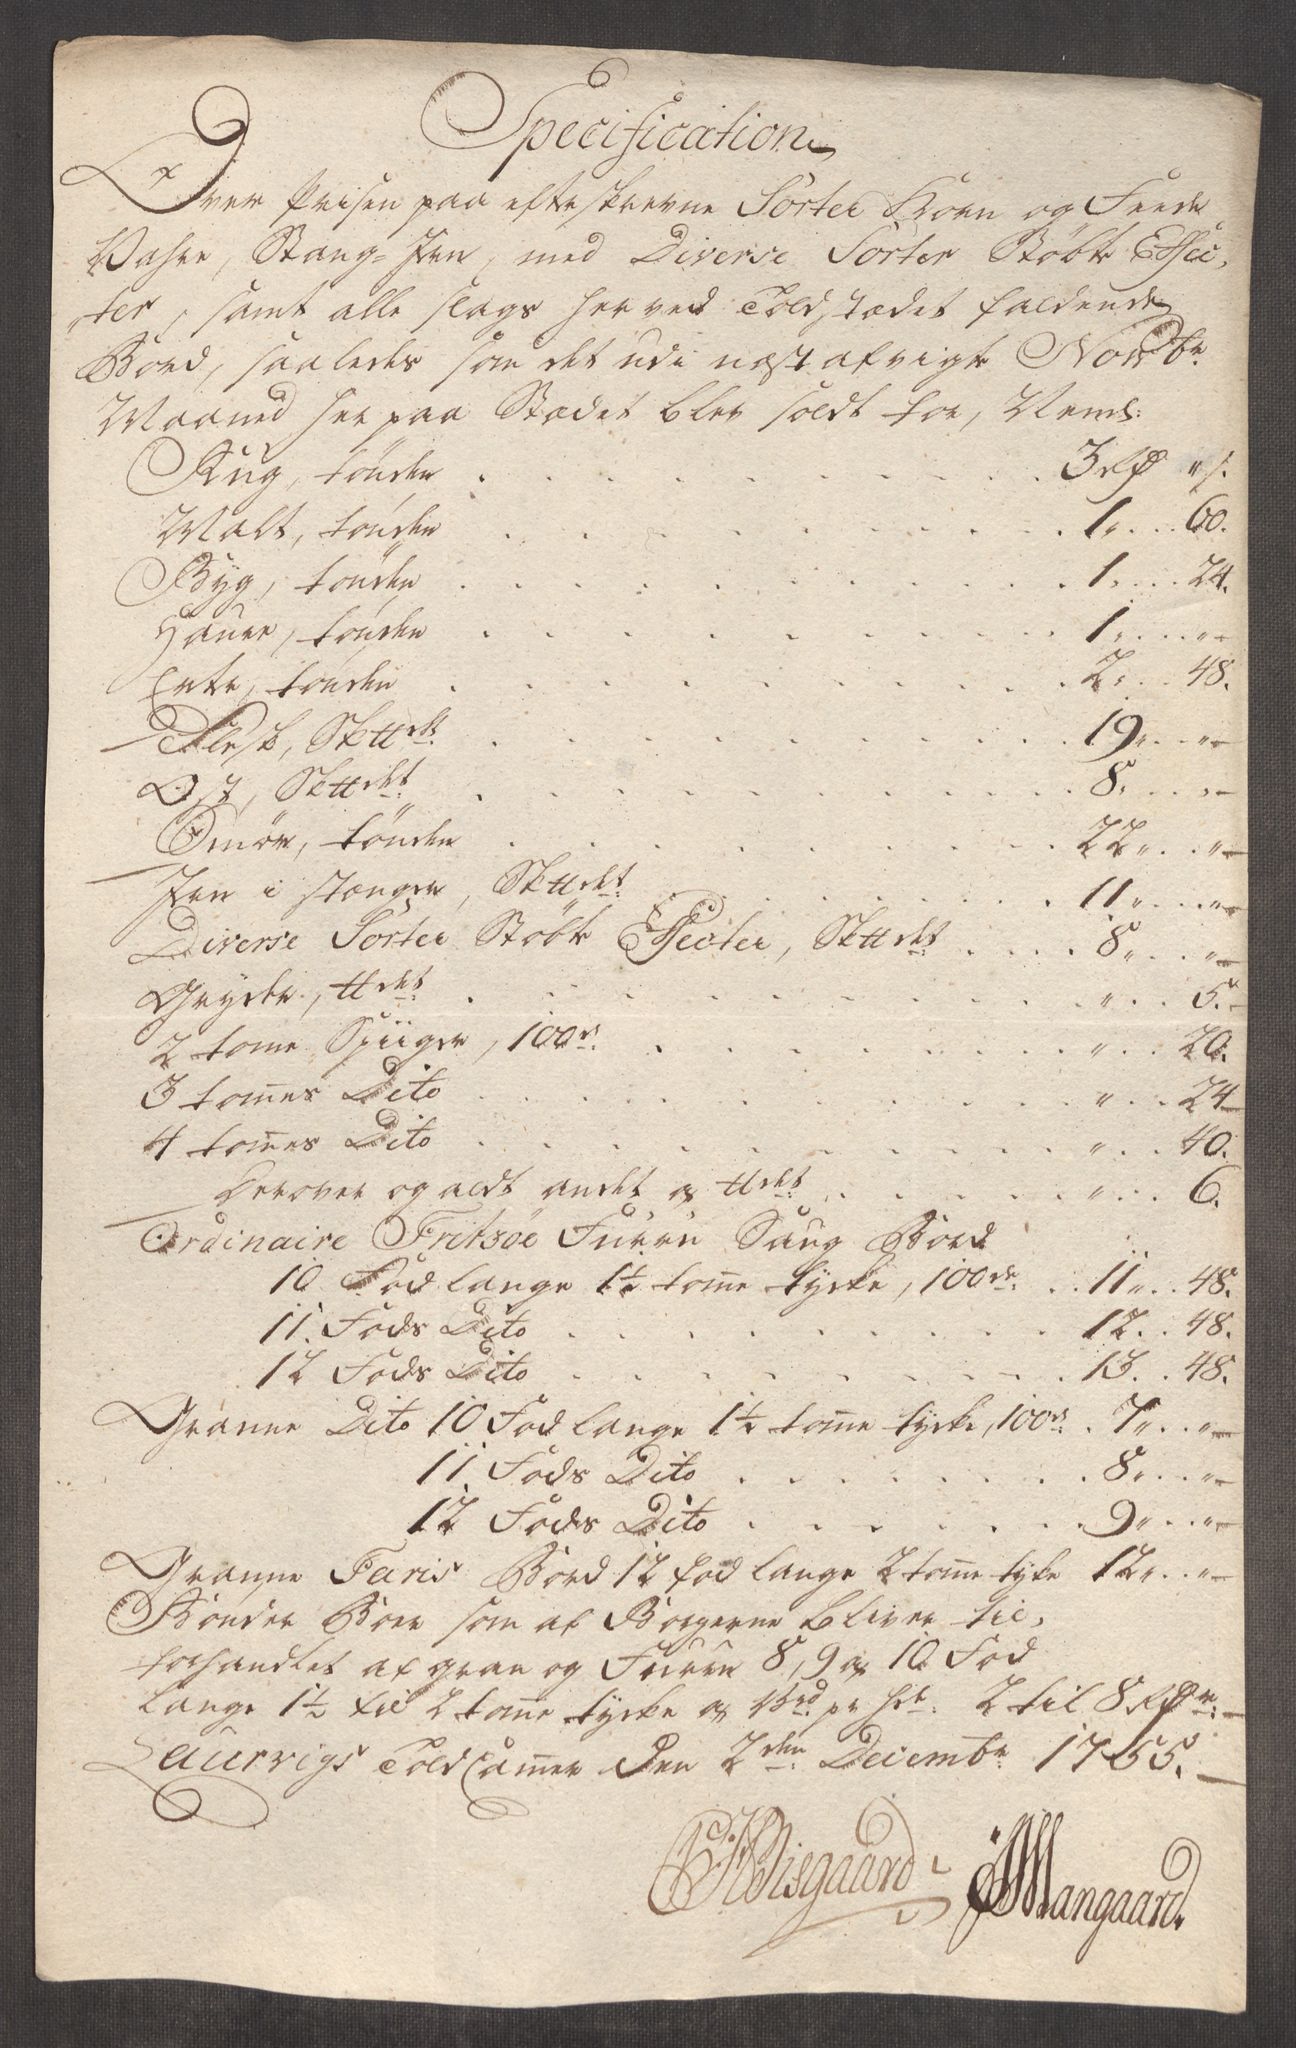 Specification
Over Prisen paa efterskrevne Sorter Korn og Feede
Vahre, Stang-Jern, med Diverse Sorter Støbte Effec-
ter, samt alle slags her ved Toldstædet faldende
Bord, saaledes som det udi næstafvigte Novbr.
Maaned her paa Stædet blev soldt for, Neml:
Rug, tønden . . . 3 rd „ s.
Malt, tønden . . . 1 „ 60.
Byg, tønden . . . 1 „ 24.
Haure, tønden . . . 1 „ „
Erte, tønden . . . 2 „ 48.
Flesk, Sk℔det . . . 19 „ „
Ost, Sk℔det . . . 8 „ „
Smør, tønden . . . 22 „ „
Jern i stænger, Sk℔det . . . 11 „ „
Diverse Sorter Støbte Effecter, Sk℔det . . . 8 „ „
Gryder, ℔det . . . „ 5.
2 tome Spiiger, 100de . . . „ 20.
3 tom̄es Dito . . . „ 24
4 tom̄es Dito . . . „ 40.
Derover og aldt andet a ℔det . . . „ 6.
Ordinaire Fritzøe Furru Saug Bord
10 Fod lange 1½ tom̄e tycke, 100de . . 11 „ 48.
11 Fods Dito . . . 12 . . 48.
12 Fods Dito . . . 13 . . 48.
Granne Dito 10 Fod lange 1½ tom̄e tycke, 100de . 7 „ „
11 Fods Dito . . . 8 „ „
12 Fods Dito . . . 9 „ „
Granne Faris Bord 12 fod lange 2 tom̄e tyke 12 „ „
Bønder Bord som af Borgerne bliver til-
forhandlet af gran og Furru 8, 9 a 10 Fod
lange 1½ til 2 tom̄e tycke a pr 2 til 8 rdr.
Laurvigs Told Cam̄er den 2den Decembr. 1765.
Wisgaard Mangaard.